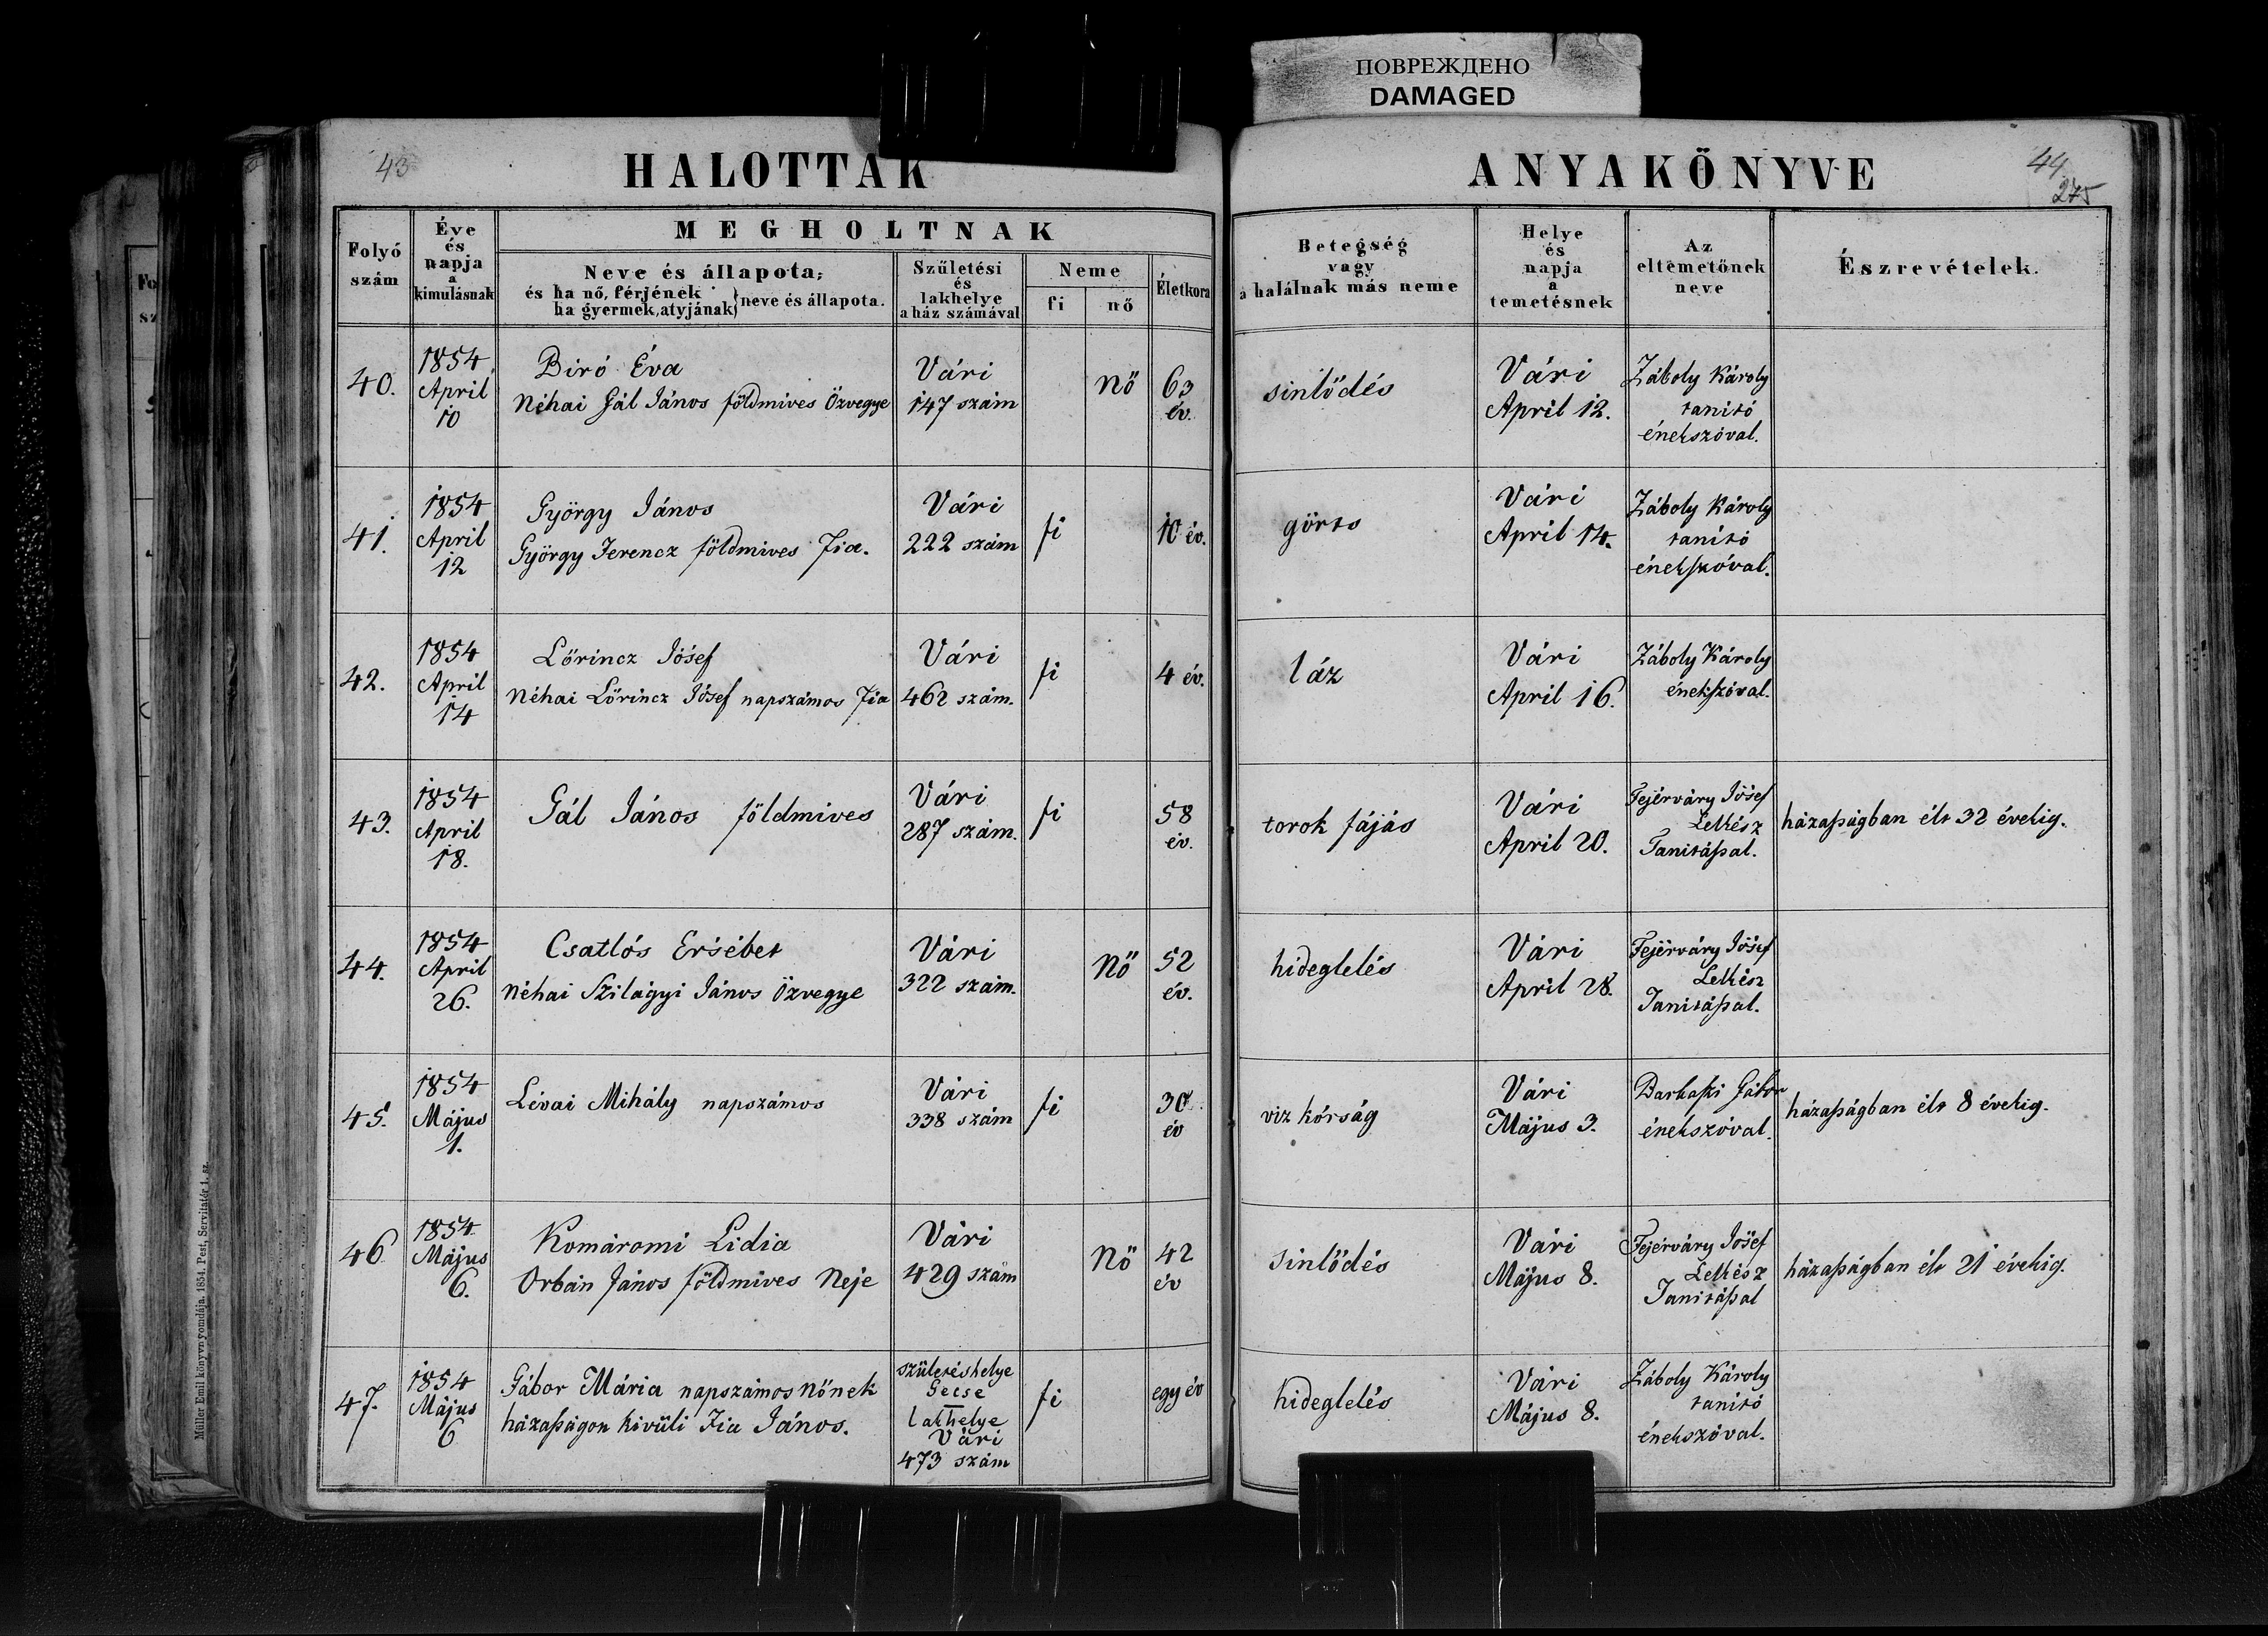 ПОВРЕЖДЕНО
DAMAGED
43
HALOTTAK
ANYAKÖNYVE
44
275
Folyó
szám
Éve
és
napja
a
kimulásnak
MEGHOLTNAK
Neve és állapota,
és ha nő, férjének
ha gyermek, atyjának
neve és állapota.
Születési
és
lakhelye
a ház számával
Neme
fi
nő
Életkora
Betegség
vagy
a halálnak más neme
Helye
és
napja
a
temetésnek
Az
eltemetőnek
neve
Észrevételek.
40.
1854
April
10
Biró Éva
Néhai Gál János földmives Özvegye
Vári
147 szám
Nő
63
év.
sinlődés
Vári
April 12.
Záboly Károly
tanitó
énekszóval.
41.
1854
April
12
György János
György Ferencz földmives Fia.
Vári
222 szám
fi
10 év.
görts
Vári
April 14.
Záboly Károly
tanitó
énekszóval.
42.
1854
April
14
Lőrincz Jósef
Néhai Lőrincz Jósef napszámos Fia
Vári
462 szám.
fi
4 év.
láz
Vári
April 16.
Záboly Károly
énekszóval.
43.
1854
April
18.
Gál János földmives
Vári
287 szám.
fi
58
év.
torok fájás
Vári
April 20.
Fejérváry Jósef
Lelkész
Tanitáſsal.
házaſságban élt 32 évekig.
44.
1854
April
26.
Csatlós Ersébet
Néhai Szilágyi János Özvegye
Vári
322 szám.
Nő
52
év.
hideglelés
Vári
April 28.
Fejérváry Jósef
Lelkész
Tanitáſsal.
45.
1854
Május
1.
Lévai Mihály napszámos
Vári
338 szám
fi
30
év
viz kórság
Vári
Május 3.
Gábor
énekszóval.
házaſságban élt 8 évekig.
46
1854
Május
6.
Komáromi Lidia
Orbán János földmives Neje
Vári
429 szám
Nő
42
év
sinlődés
Vári
Május 8.
Fejérváry Jósef
Lelkész
Tanitáſsal
házaſságban élt 21 évekig.
47.
1854
Május
6
Gábor Mária napszámos nőnek
házaſságon kivüli Fia János.
születéshelye
Gecse
lakhelye
Vári
473 szám
fi
egy év
hideglelés
Vári
Május 8.
Záboly Károly
tanitó
énekszóval.
Müller Emil könyvnyomdája. 1854. Pest, Servitatér 1. sz.